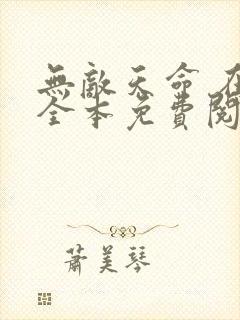 無敵天命 在
全本免費閱
蕭美琴